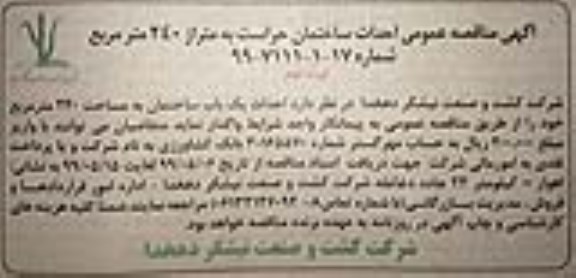 آگهی مناقصه عمومی احداث ساختمان حراست به متراژ ۲۴۰ متر مربع
شماره ۱۷-۱-۹۹۰۷۱۱۱
شرکت کشت و صنعت نیشکر دهخدا در نظر دارد احداث یک باب ساختمان به مساحت ۲۴۰ مترمربع
خود را از طریق مناقصه عمومی به پیمانکار واجد شرایط واگذار نماید متقاضیان می توانند با واریز
مبلغ ریال به حساب مهر گستر شماره بانک کشاورزی به نام شرکت و یا پرداخت
نقدی به امور مالی شرکت جهت دریافت اسناد مناقصه از تاریخ لغایت ۹۹/۰۵/۱۵ به نشانی:
اهواز - کیلومتر جاده شرکت کشت و صنعت نیشکر دهخدا - اداره امور قراردادها و
فروش، مدیریت بازرگانی (با شماره تماس) مراجعه نمایند ضمنا کلیه هزینه های
کارشناسی و چاپ آگهی در روزنامه به عهده برنده مناقصه خواهد بود.
شرکت کشت و صنعت نیشکر دهخدا